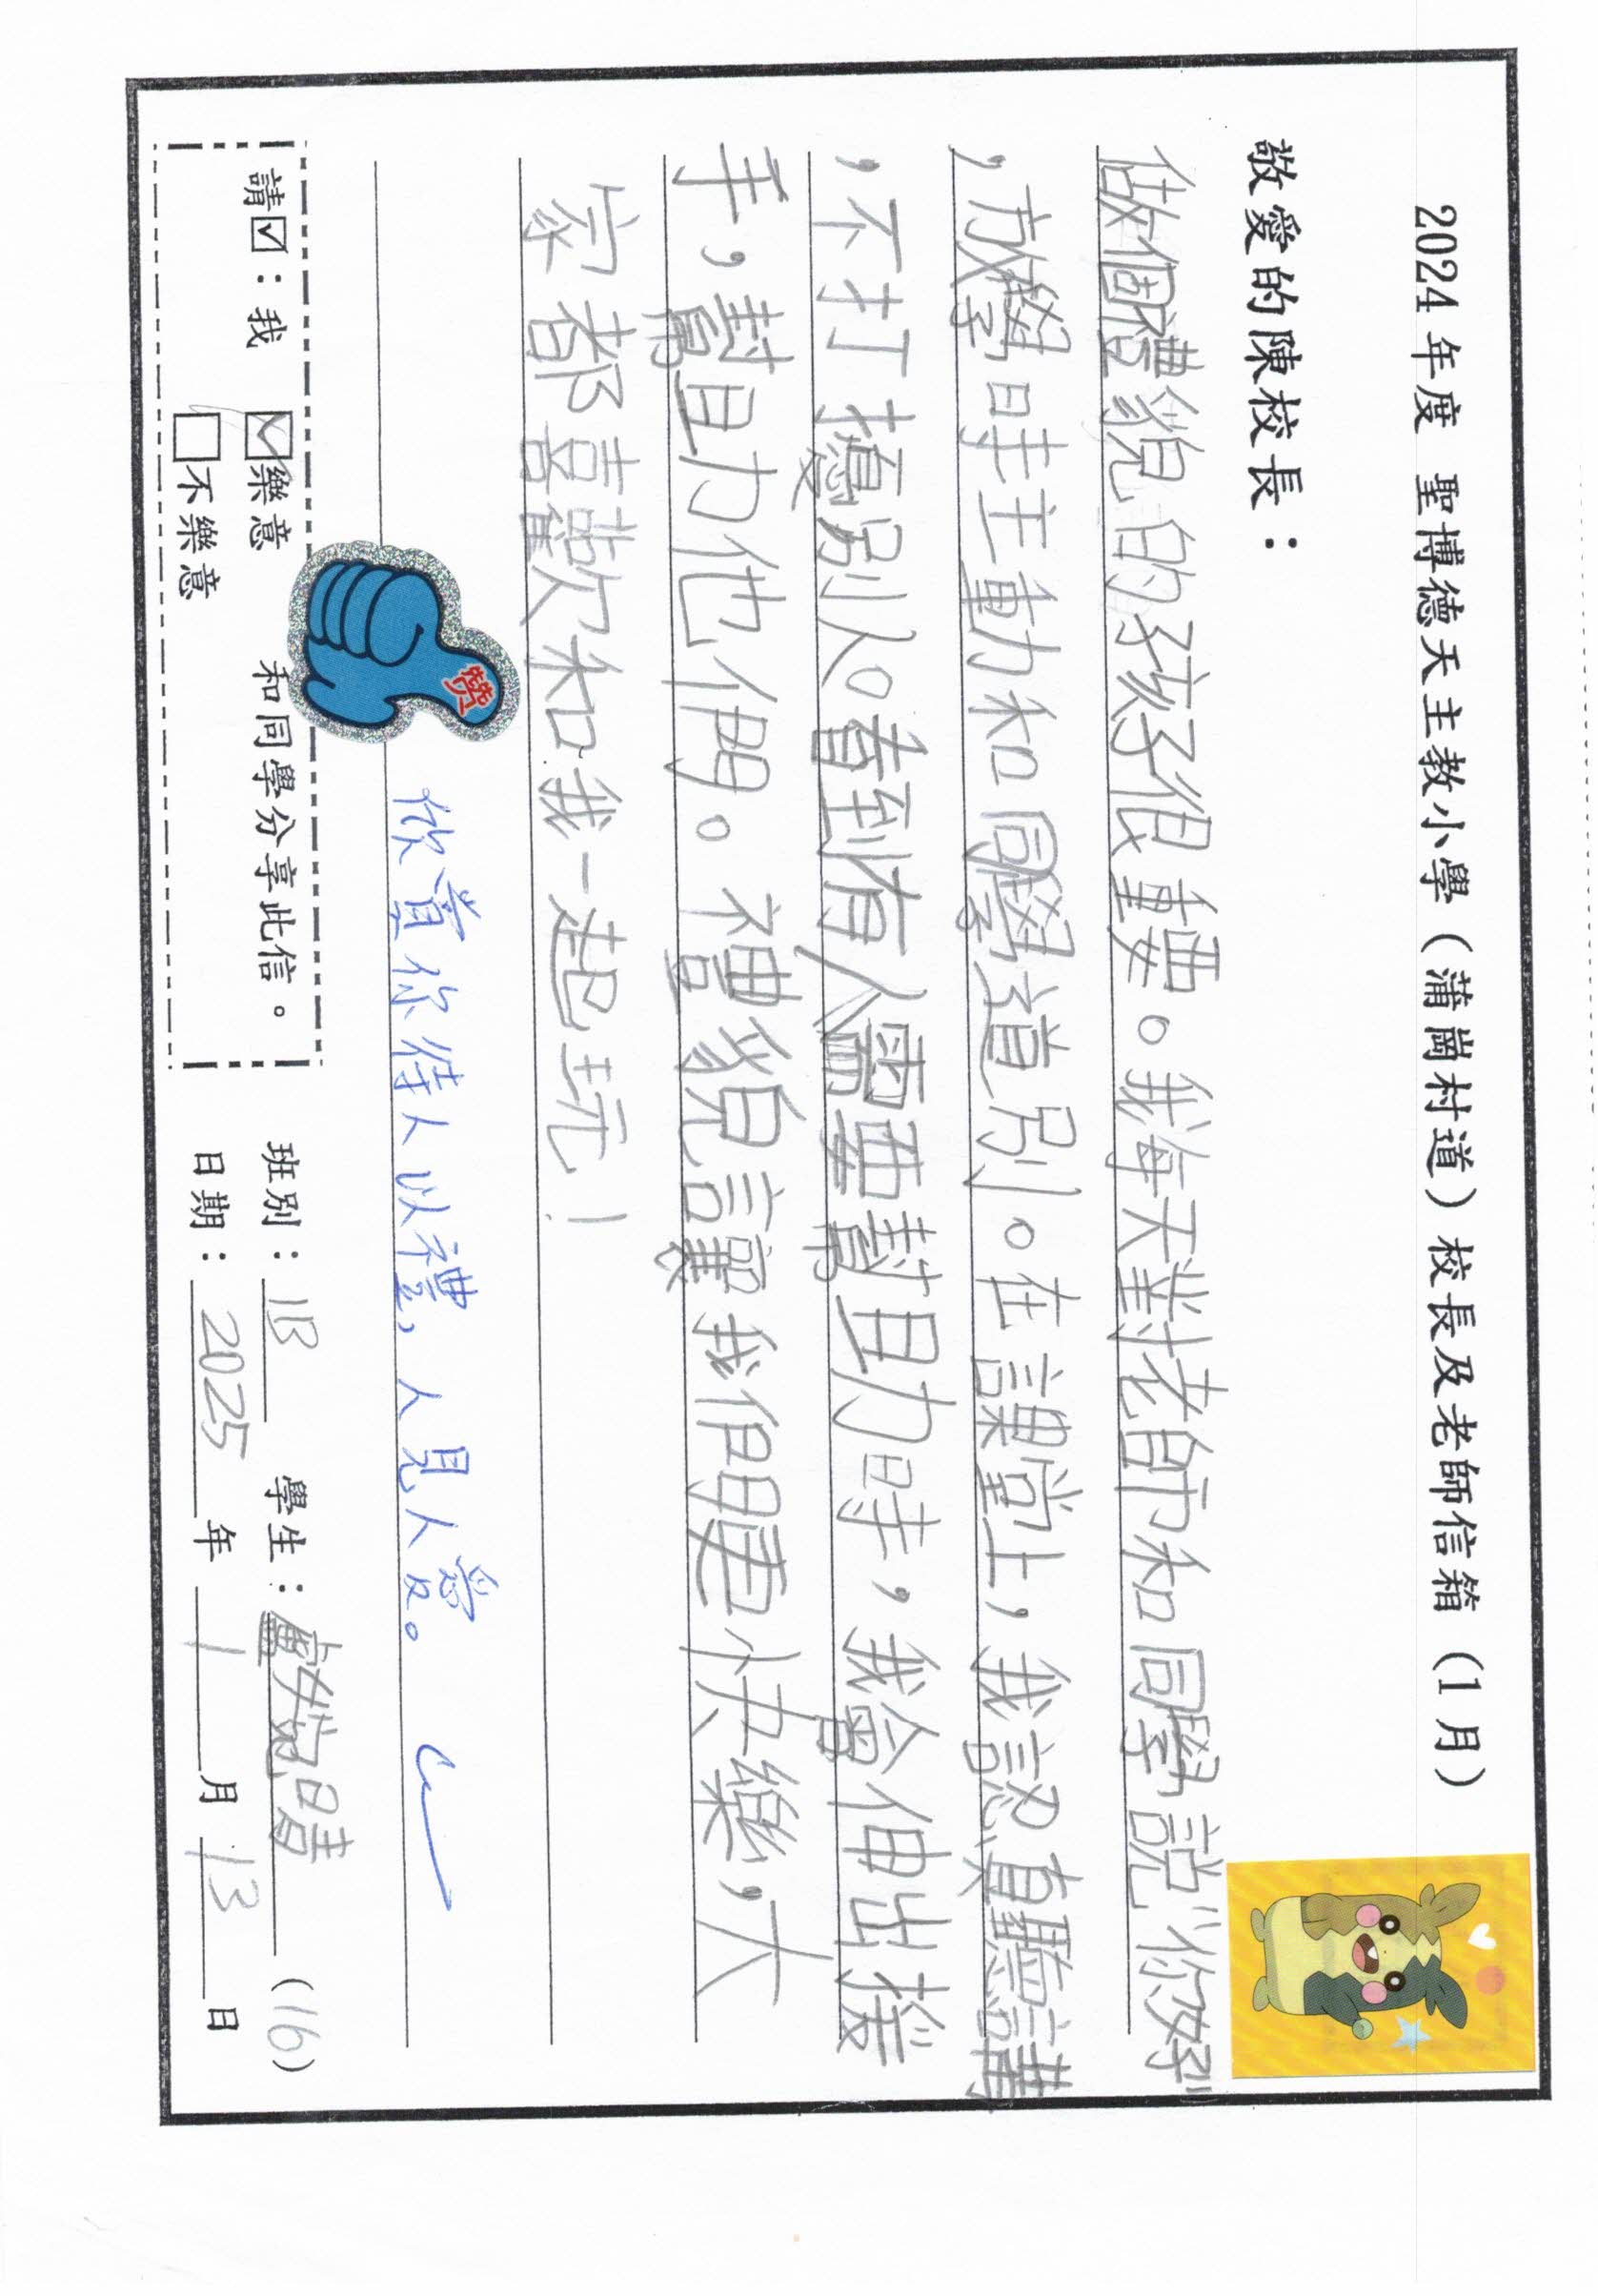 2024年度 聖博德天主教小學（蒲崗村道）校長及老師信箱（1月）
敬愛的陳校長：
做個禮貌的孩子很重要。我海天對老師和同學說：「你好」
，放學時主動和同學道別。在課堂上，我認真聽講
，不打擾別人。看到有人需要幫助時，我會伸出援
手，幫助他們。禮貌讓我們更快樂，大
家都喜歡和我一起玩！
讚
欣賞你待人以禮，人見人愛。
請☑：我 ☑樂意 和同學分享此信。
□不樂意
班別：1B 學生：盧 晴 (16)
日期：2025年1月13日